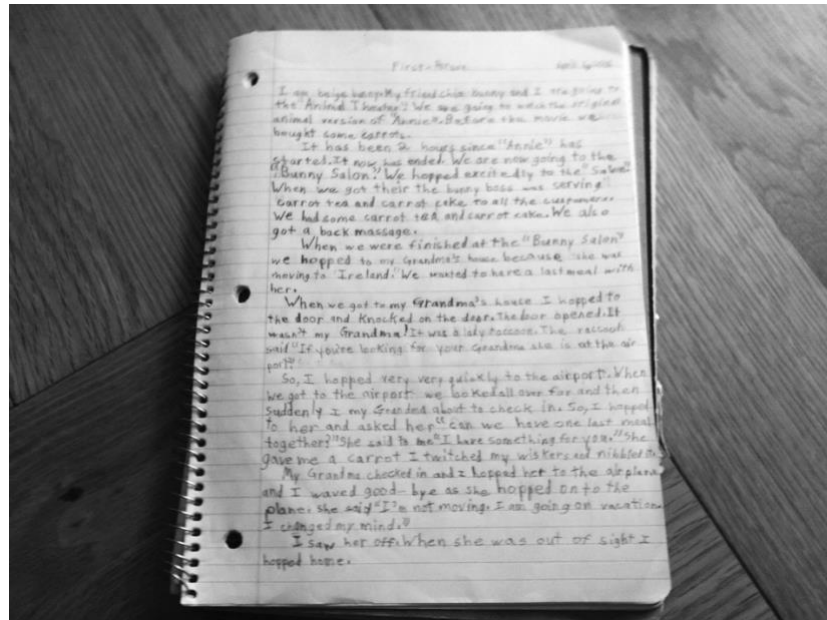 First-Person
I am beige bunny. My friend chin bunny and I are going to
the "Animal Theater". We are going to watch the original
animal version of "Annie". Before the movie we
bought some carrots.
It has been 2 hours since "Annie" has
started. It now has ended. We are now going to the
"Bunny Salon". We hopped excitedly to the "Salon"
When we got their the bunny boss was serving
carrot tea and carrot cake to all the customers.
We had some carrot tea and carrot cake. We also
got a back massage.
When we were finished at the "Bunny Salon"
we hopped to my Grandma's house because she was
moving to "Ireland." We wanted to have a last meal with
her.
When we got to my Grandma's house I hopped to
the door and knocked on the door. The door opened. It
wasn't my Grandma! It was a lady raccoon. The raccoon
said "If you're looking for your Grandma she is at the air
port."
So, I hopped very very quickly to the airport. When
we got to the airport we looked all over far and then
suddenly I my Grandma about to check in. So, I hopped
to her and asked her "can we have one last meal
together?" She said to me "I have something for you." She
gave me a carrot I twitched my wiskers and nibbled it.
My Grandma checked in and I hopped her to the airplane
and I waved good-bye as she hopped on to the
plane. she said "I'm not moving. I am going on vacation
I changed my mind."
I saw her off. When she was out of sight I
hopped home.